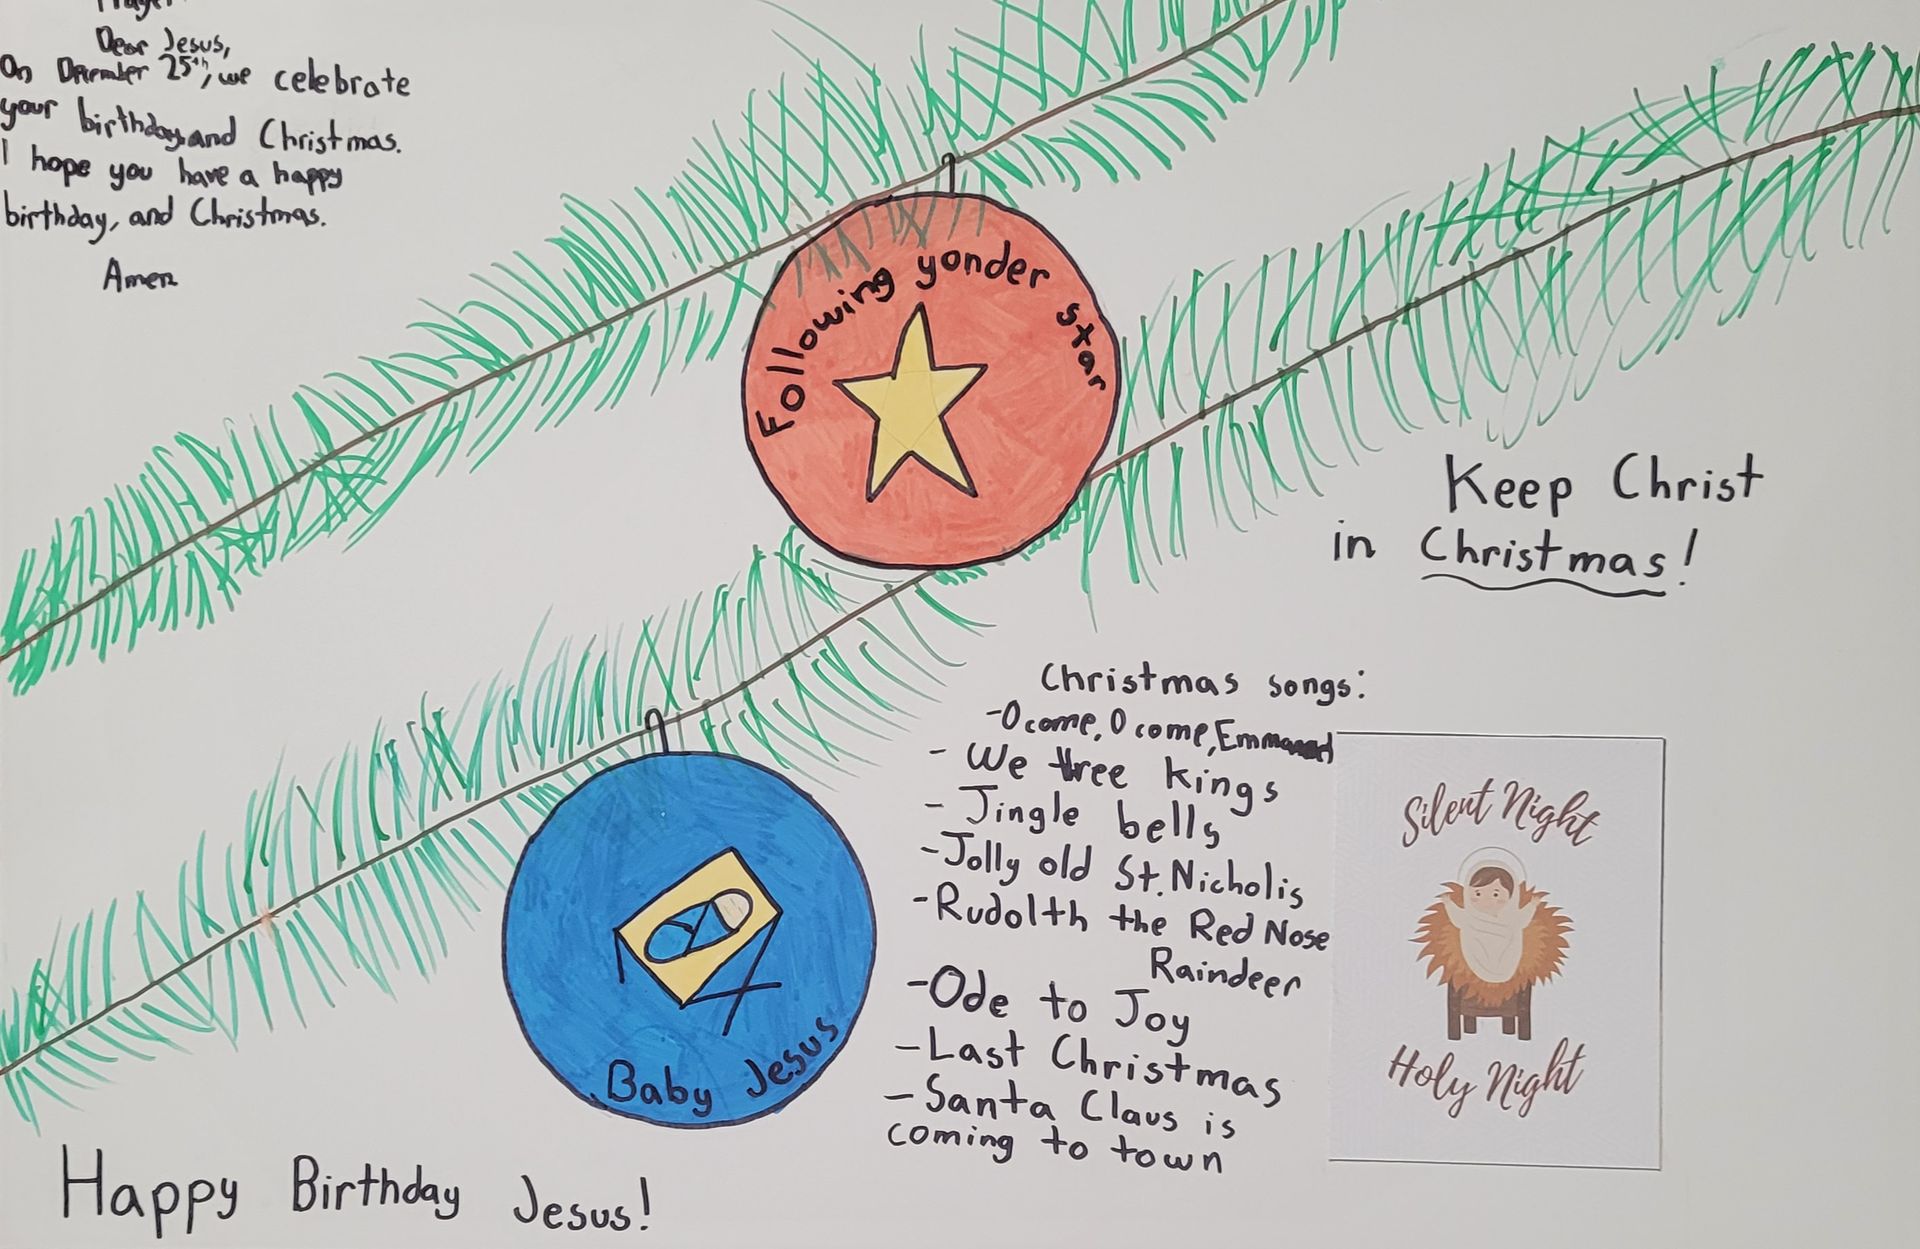 Prayer
Dear Jesus,
On December 25th, we celebrate
your birthday, and Christmas.
I hope you have a happy
birthday, and Christmas.
Amen
Following yonder star
Keep Christ
in Christmas!
Christmas songs:
-O come, O come,
- We three kings
- Jingle bells
-Jolly old St. Nicholis
-Rudolth the Red Nose
Raindeer
-Ode to Joy
-Last Christmas
-Santa Claus is
coming to town
Silent Night
Holy Night
Baby Jesus
Happy Birthday Jesus!